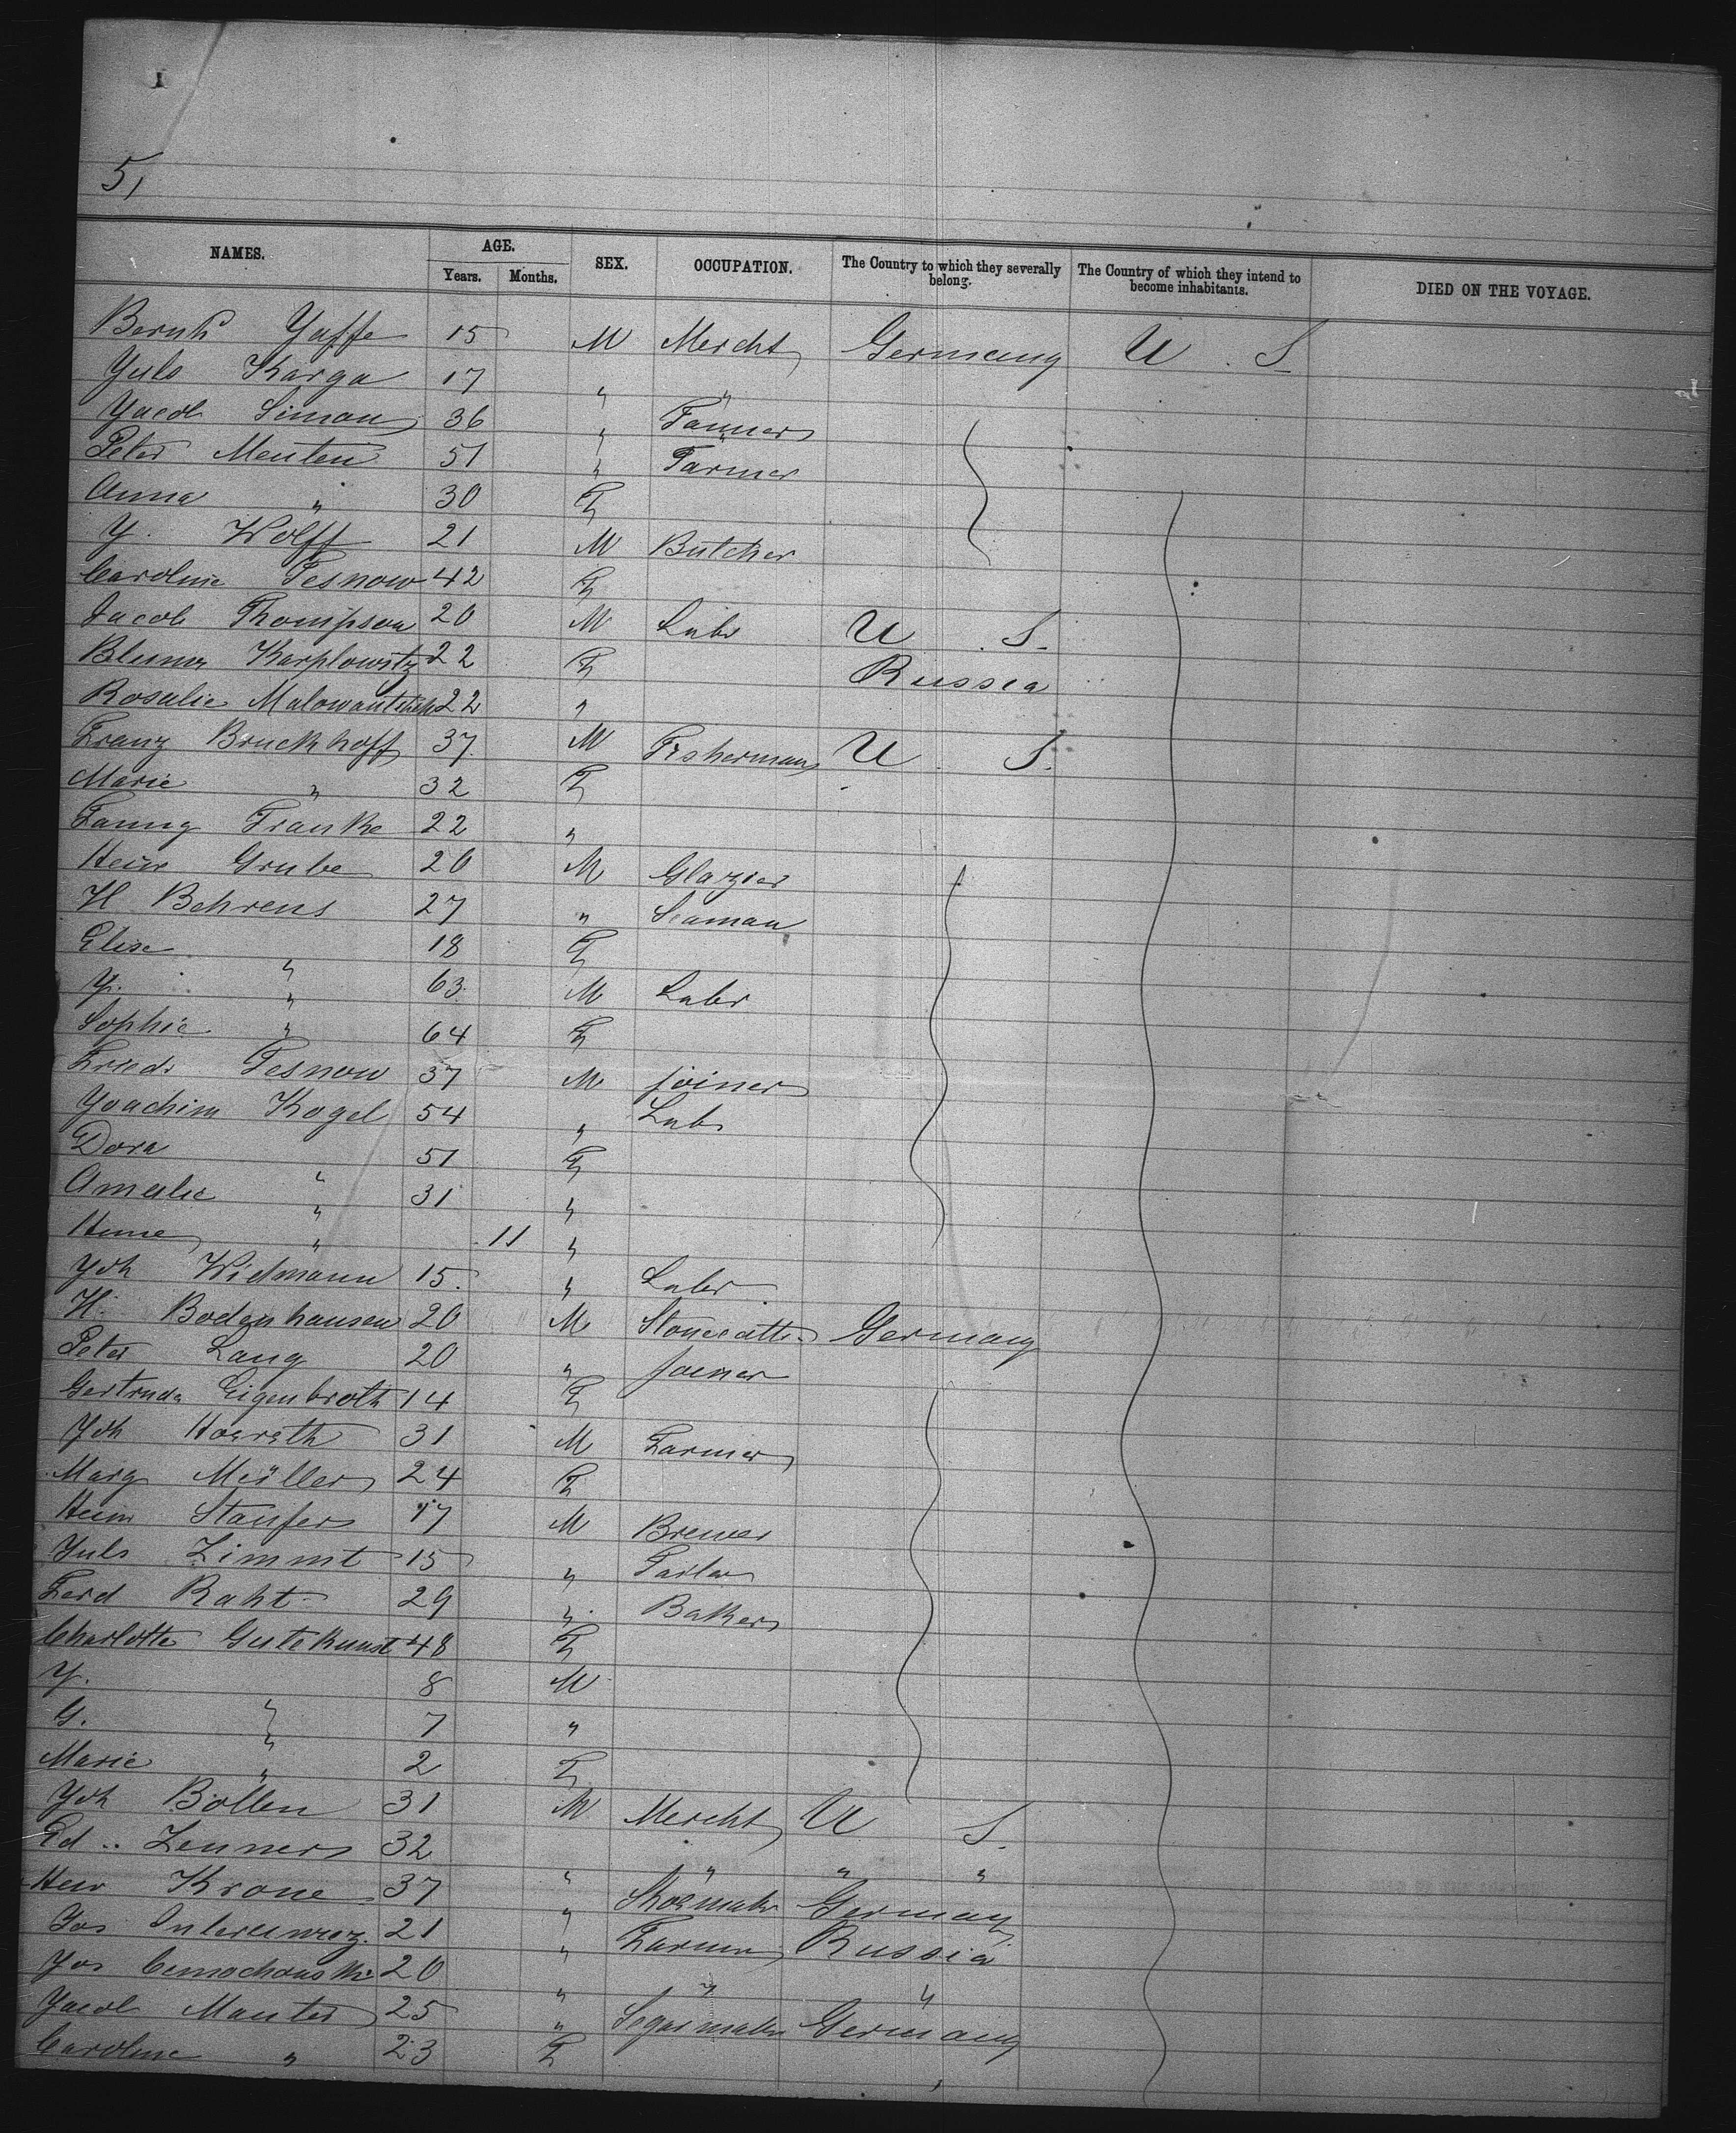 5,
NAMES. AGE. SEX. OCCUPATION. The Country to which they severally belong. The Country of which they intend to become inhabitants. DIED ON THE VOYAGE.
Years. Months.
Bernh Yaffe 15 M Mercht Germany U. S.
Yuls Karga 17 " "
Yacob Simon 36 " Tanner
Peter Menten 51 " Farmer
Anna " 30 F
Y. Wolff 21 M Butcher
Caroline Tesnow 42 F
Jacob Thompson 20 M Labr U. S.
Bluma Karplowitz 22 F Russia
Rosalie 22 "
Franz Bruckhoff 37 M Fisherman U. S.
Marie " 32 F
Fanny Franke 22 "
Heinr Grube 20 M Glazier
H Behrens 27 " Seaman
Elise " 18 F
Y. " 63 M Labr
Sophie " 64 F
Friedr Tesnow 37 M joiner
Yoachim Kogel 54 " Labr
Dora " 51 F
Amalie " 31 "
" 11 "
Yoh Widmann 15 " Labr
H. Bodenhausen 20 M Stonecutter Germany
Peter Lang 20 " joiner
Gertruda Eigenbroth 14 F
Yoh 31 M Farmer
Marg Müller 24 F
Heinr Staufer 17 M Brewer
Yuls Zimmt 15 " Tailor
Ferd Raht 29 " Baker
Charlotte Gutekunst 48 F
Y. " 8 M
G. " 7 "
Marie " 2 F
Yoh Bollen 31 M Mercht U S.
Ed.. Zenners 32 " " " "
Heinr Krone 37 " Shoemakr Germany
Yos 21 " Farmer Russia
Yos 20 " " "
Yacob Manter 25 " Segarmakr Germany
Caroline " 23 F